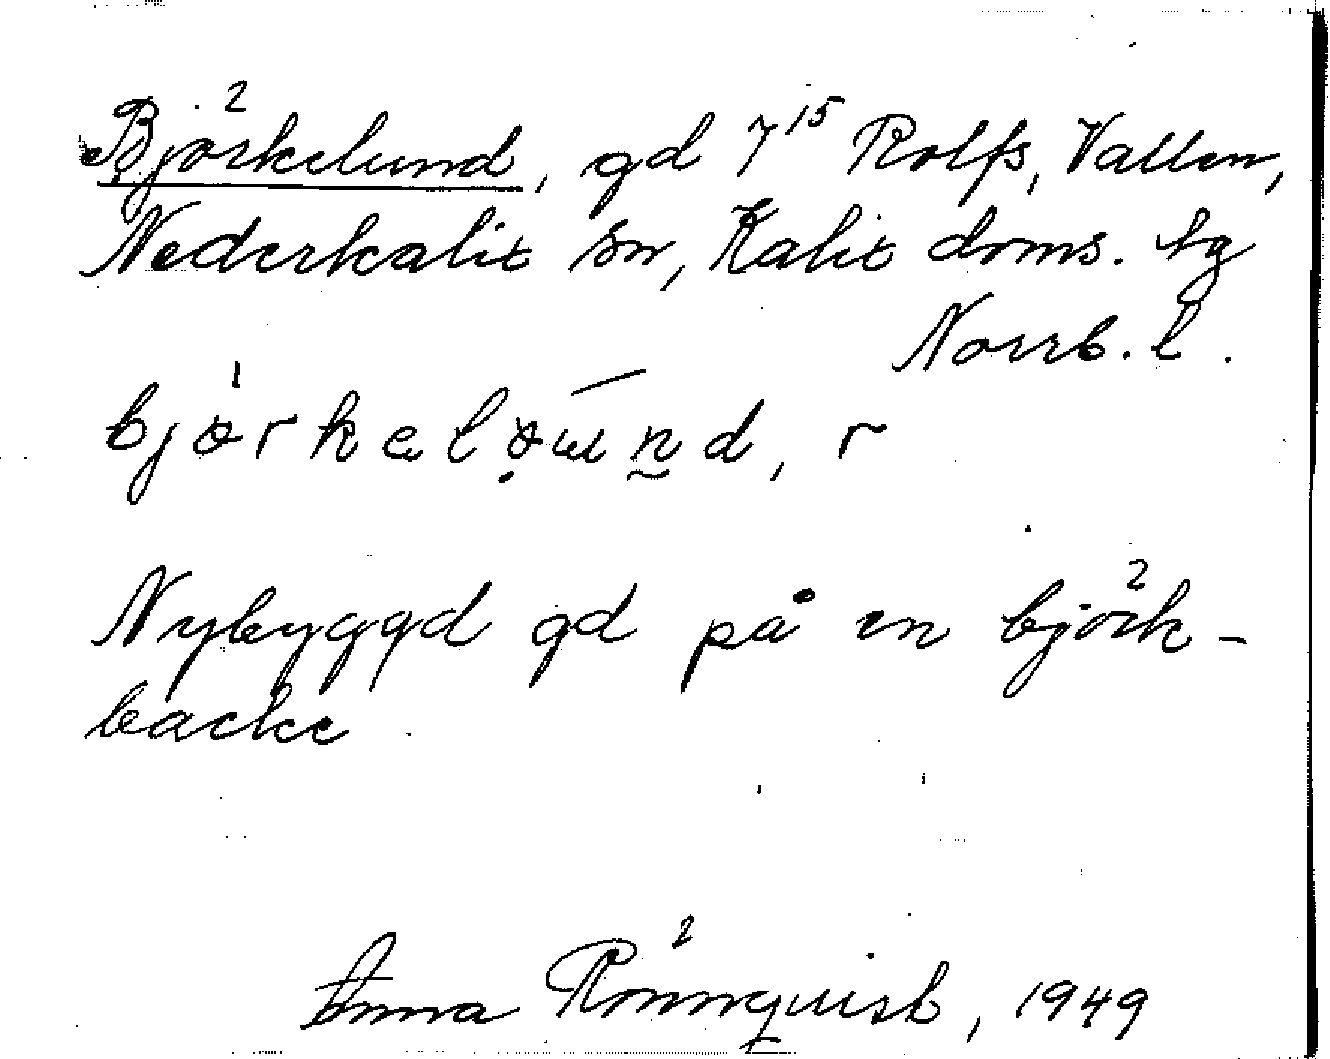 Björkelund, gd 7¹⁵ Rolfs, Vallen,
Nederkalix sn, Kalix doms. tg
Norrb. l.
björkelo̤ɯn̰d, r
Nybyggd gd på en björk-
backe
Anna Rönnquist, 1949